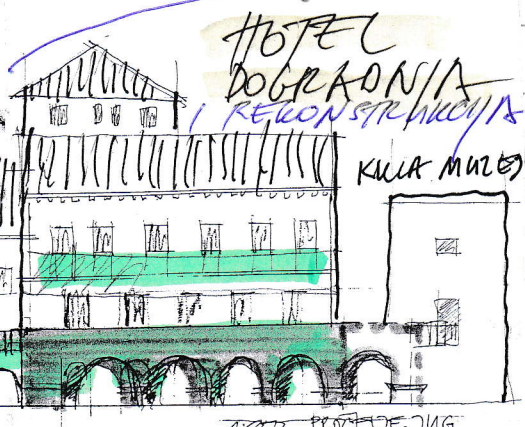 HOTEL
DOGRADNJA
I REKONSTRUKCIJA
KULA MUZEJ
PROČELJE JUG